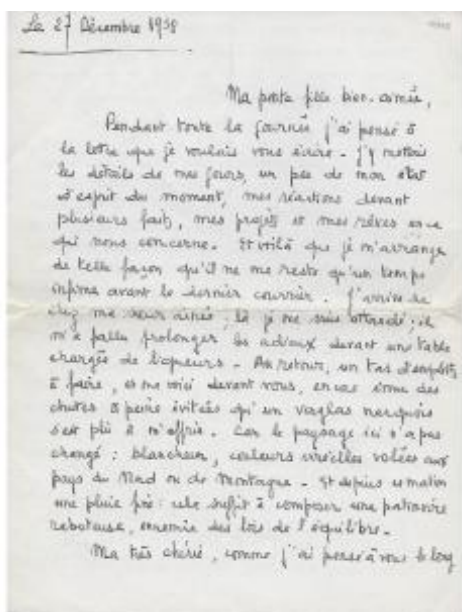 Le 27 Décembre 1938
Ma petite fille bien-aimée,
Pendant toute la journée j'ai pensé à
la lettre que je voulais vous écrire - J'y mettais
les détails de mes jours, un peu de mon état
d'esprit du moment, mes réactions devant
plusieurs faits, mes projets et mes rêves en ce
qui nous concerne. Et voilà que je m'arrange
de telle façon qu'il ne me reste qu'un temps
infime avant le dernier courrier. J'arrive de
chez ma sœur aînée ; là je me suis attardé ; il
m'a fallu prolonger les adieux devant une table
chargée de liqueurs - Au retour, un tas d'emplettes
à faire, et me voici devant vous, encore ému des
chutes à peine évitées qu'un verglas narquois
s'est plu à m'offrir. Car le paysage ici n'a pas
changé : blancheur, couleurs irréelles volées aux
pays du Nord ou de Montagne - Et depuis ce matin
une pluie fine : cela suffit à composer une patinoire
raboteuse, ennemie des lois de l'équilibre -
Ma très chérie, comme j'ai pensé à vous le long